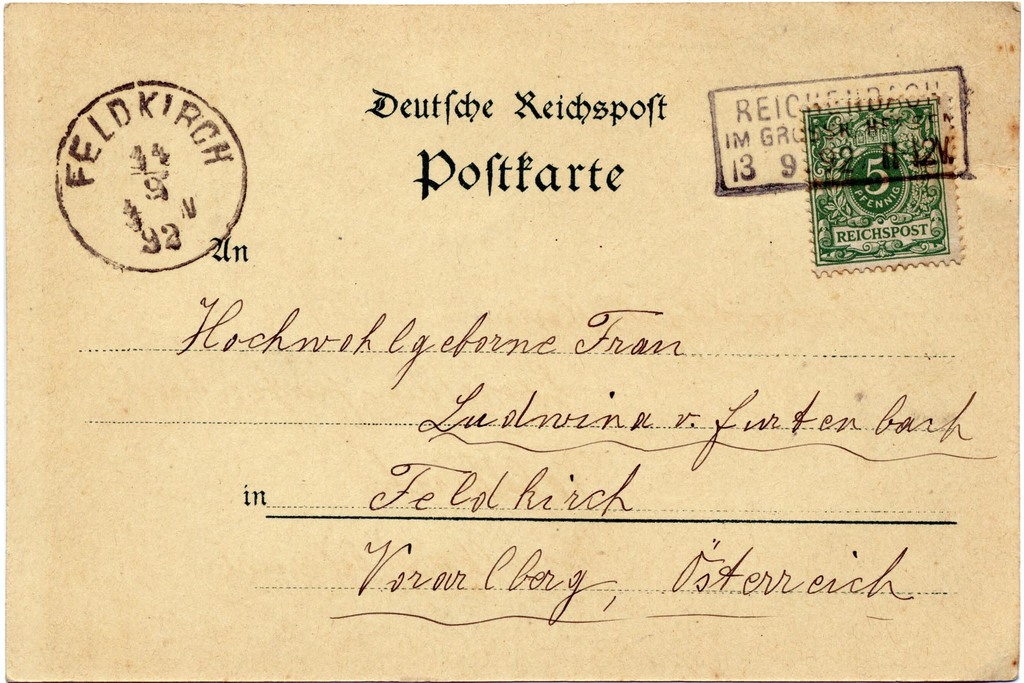 FELDKIRCH
14
9
N
92
Deutsche Reichspost
Postkarte
REICHENBACH
IM GROSSH. HESSEN
13 9 92 11-12V.
5
PFENNIG
REICHSPOST
An
Hochwohlgeborne Frau
Ludwina v. Furtenbach
in Feldkirch
Vorarlberg, Österreich